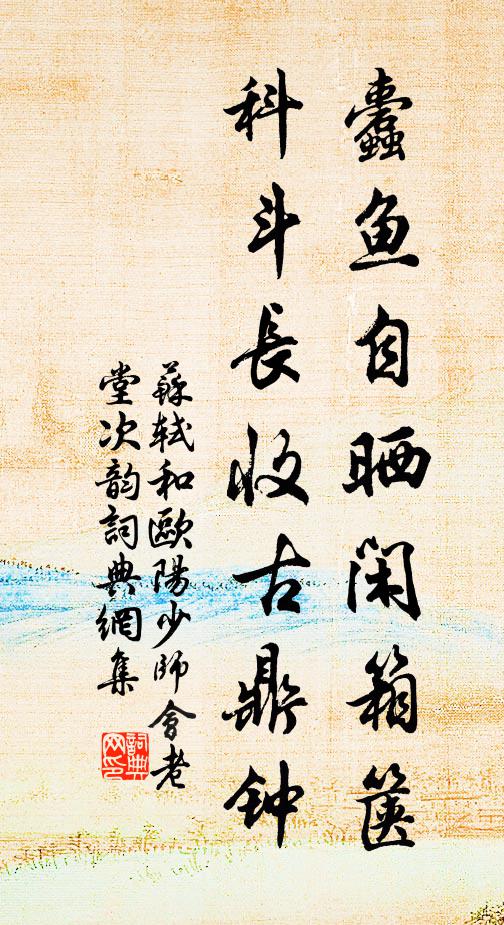 蠹鱼自晒闲箱箧
科斗長收古鼎钟
蘇軾和歐陽少師會老
堂次韵詞典網集
詞典
网印